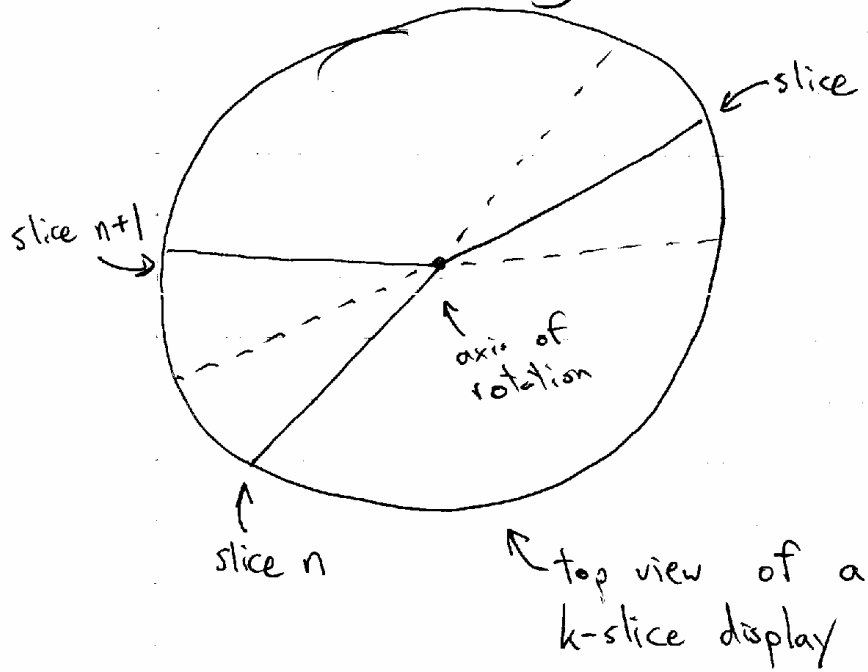 slice
slice n+1
axis of
rotation
slice n
top view of a
k-slice display